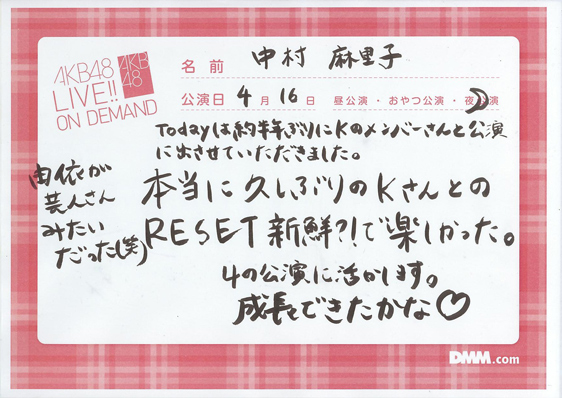 AKB48
LIVE!!
ON DEMAND
AKB
48
名前 中村 麻里子
公演日 4月16日 昼公演・おやつ公演・夜公演
Todayは約半年ぶりにKのメンバーさんと公演
に出させていただきました。
由依が
芸人さん
みたい
だった(笑)
本当に久しぶりのKさんとの
RESET新鮮?!で楽しかった。
4の公演に活かします。
成長できたかな♡
DMM.com